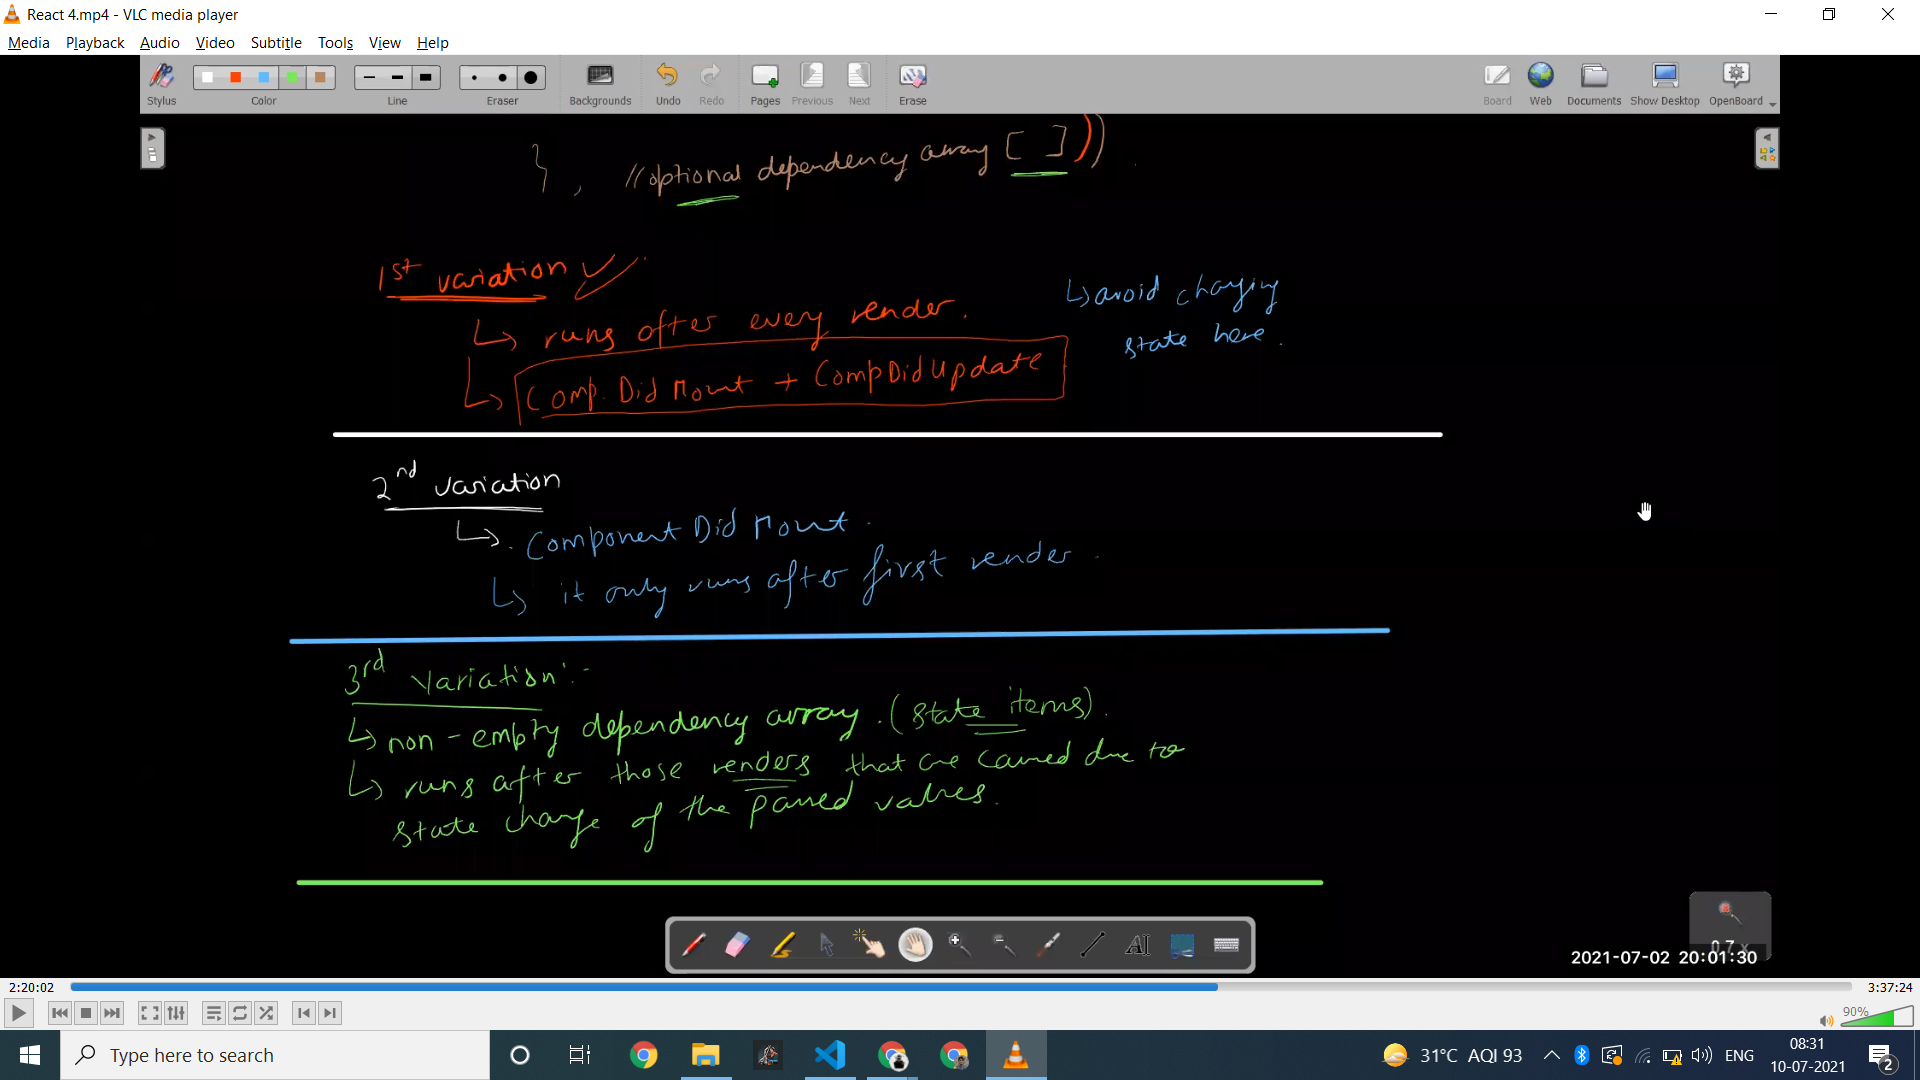 React 4.mp4 - VLC media player
Media Playback Audio Video Subtitle Tools View Help
Stylus Color Line Eraser Backgrounds Undo Redo Pages Previous Next Erase Board Web Documents Show Desktop OpenBoard
} , //optional dependency array [ ] ))
1st variation
↳ runs after every render.
↳ Comp. Did Mount + CompDidUpdate
↳ avoid changing
state here.
2nd variation
↳ . Component Did Mount .
↳ it only runs after first render .
3rd variation :-
↳ non - empty dependency array . (state items) .
↳ runs after those renders that are caused due to
state change of the passed values .
0.7 x
2021-07-02 20:01:30
2:20:02
3:37:24
90%
Type here to search
31°C AQI 93
ENG
08:31
10-07-2021
2